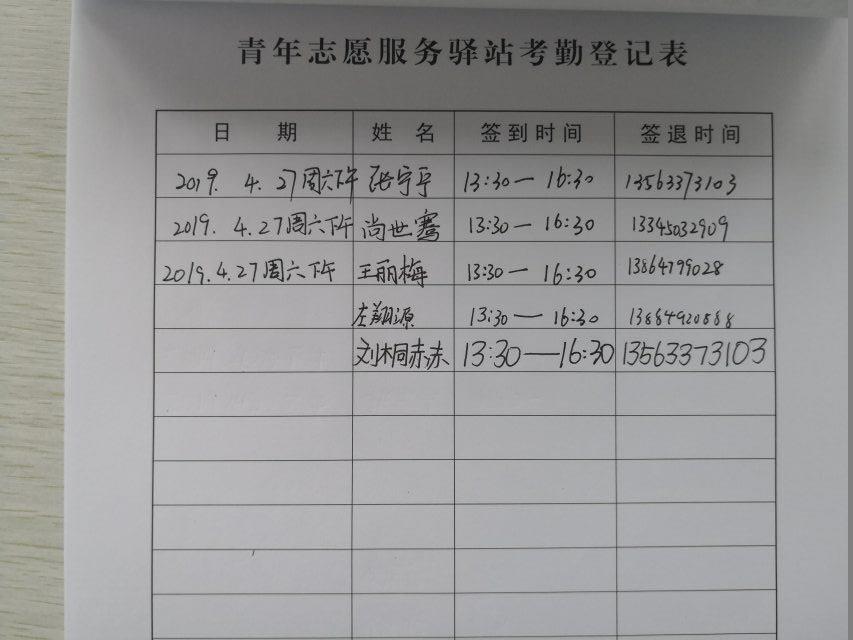 青年志愿服务驿站考勤登记表
日 期 姓 名 签到时间 签退时间
2019. 4. 27周六下午 张宇平 13:30— 16:30 13563373103
2019. 4. 27周六下午 尚世骞 13:30— 16:30 13345032909
2019.4.27周六下午 王丽梅 13:30— 16:30 13864799028
左翔源 13:30— 16:30 13884920888
刘桐赤赤 13:30—16:30 13563373103